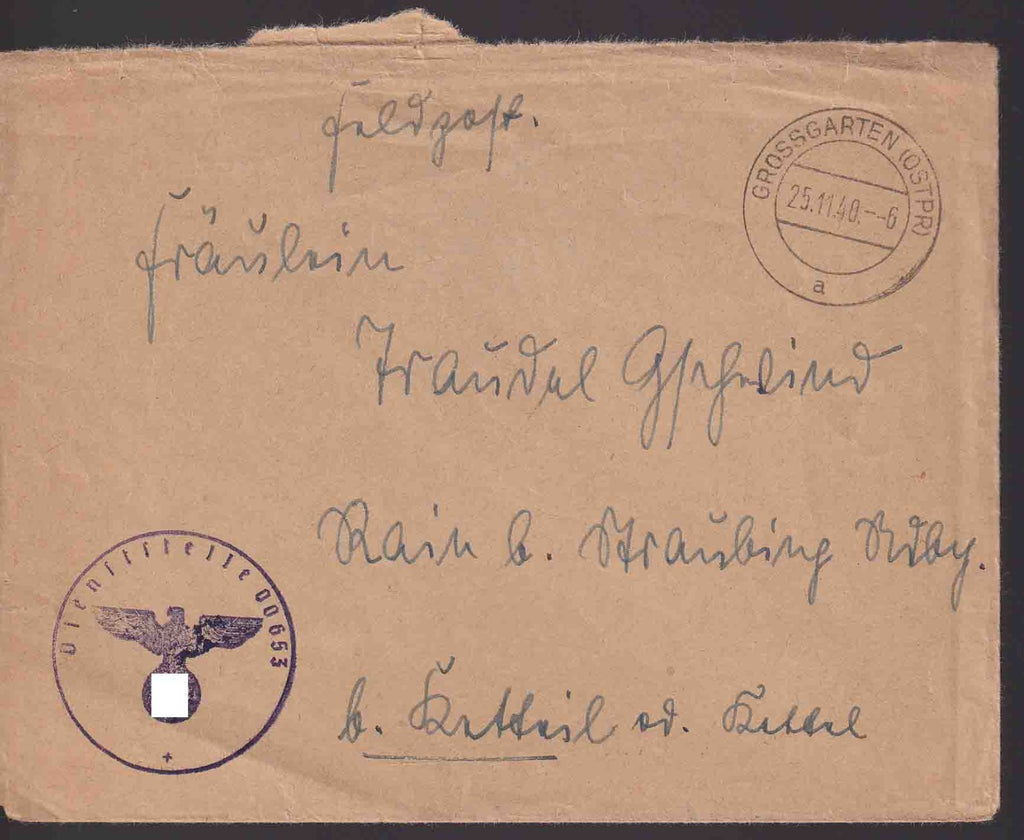 Feldpost.
GROSSGARTEN (OSTPR)
25.11.40.--6
a
Fräulein
Traudel Gschwind
Rain b. Straubing Ndby.
Dienststelle 00653
b. Ketteil od. Kettel